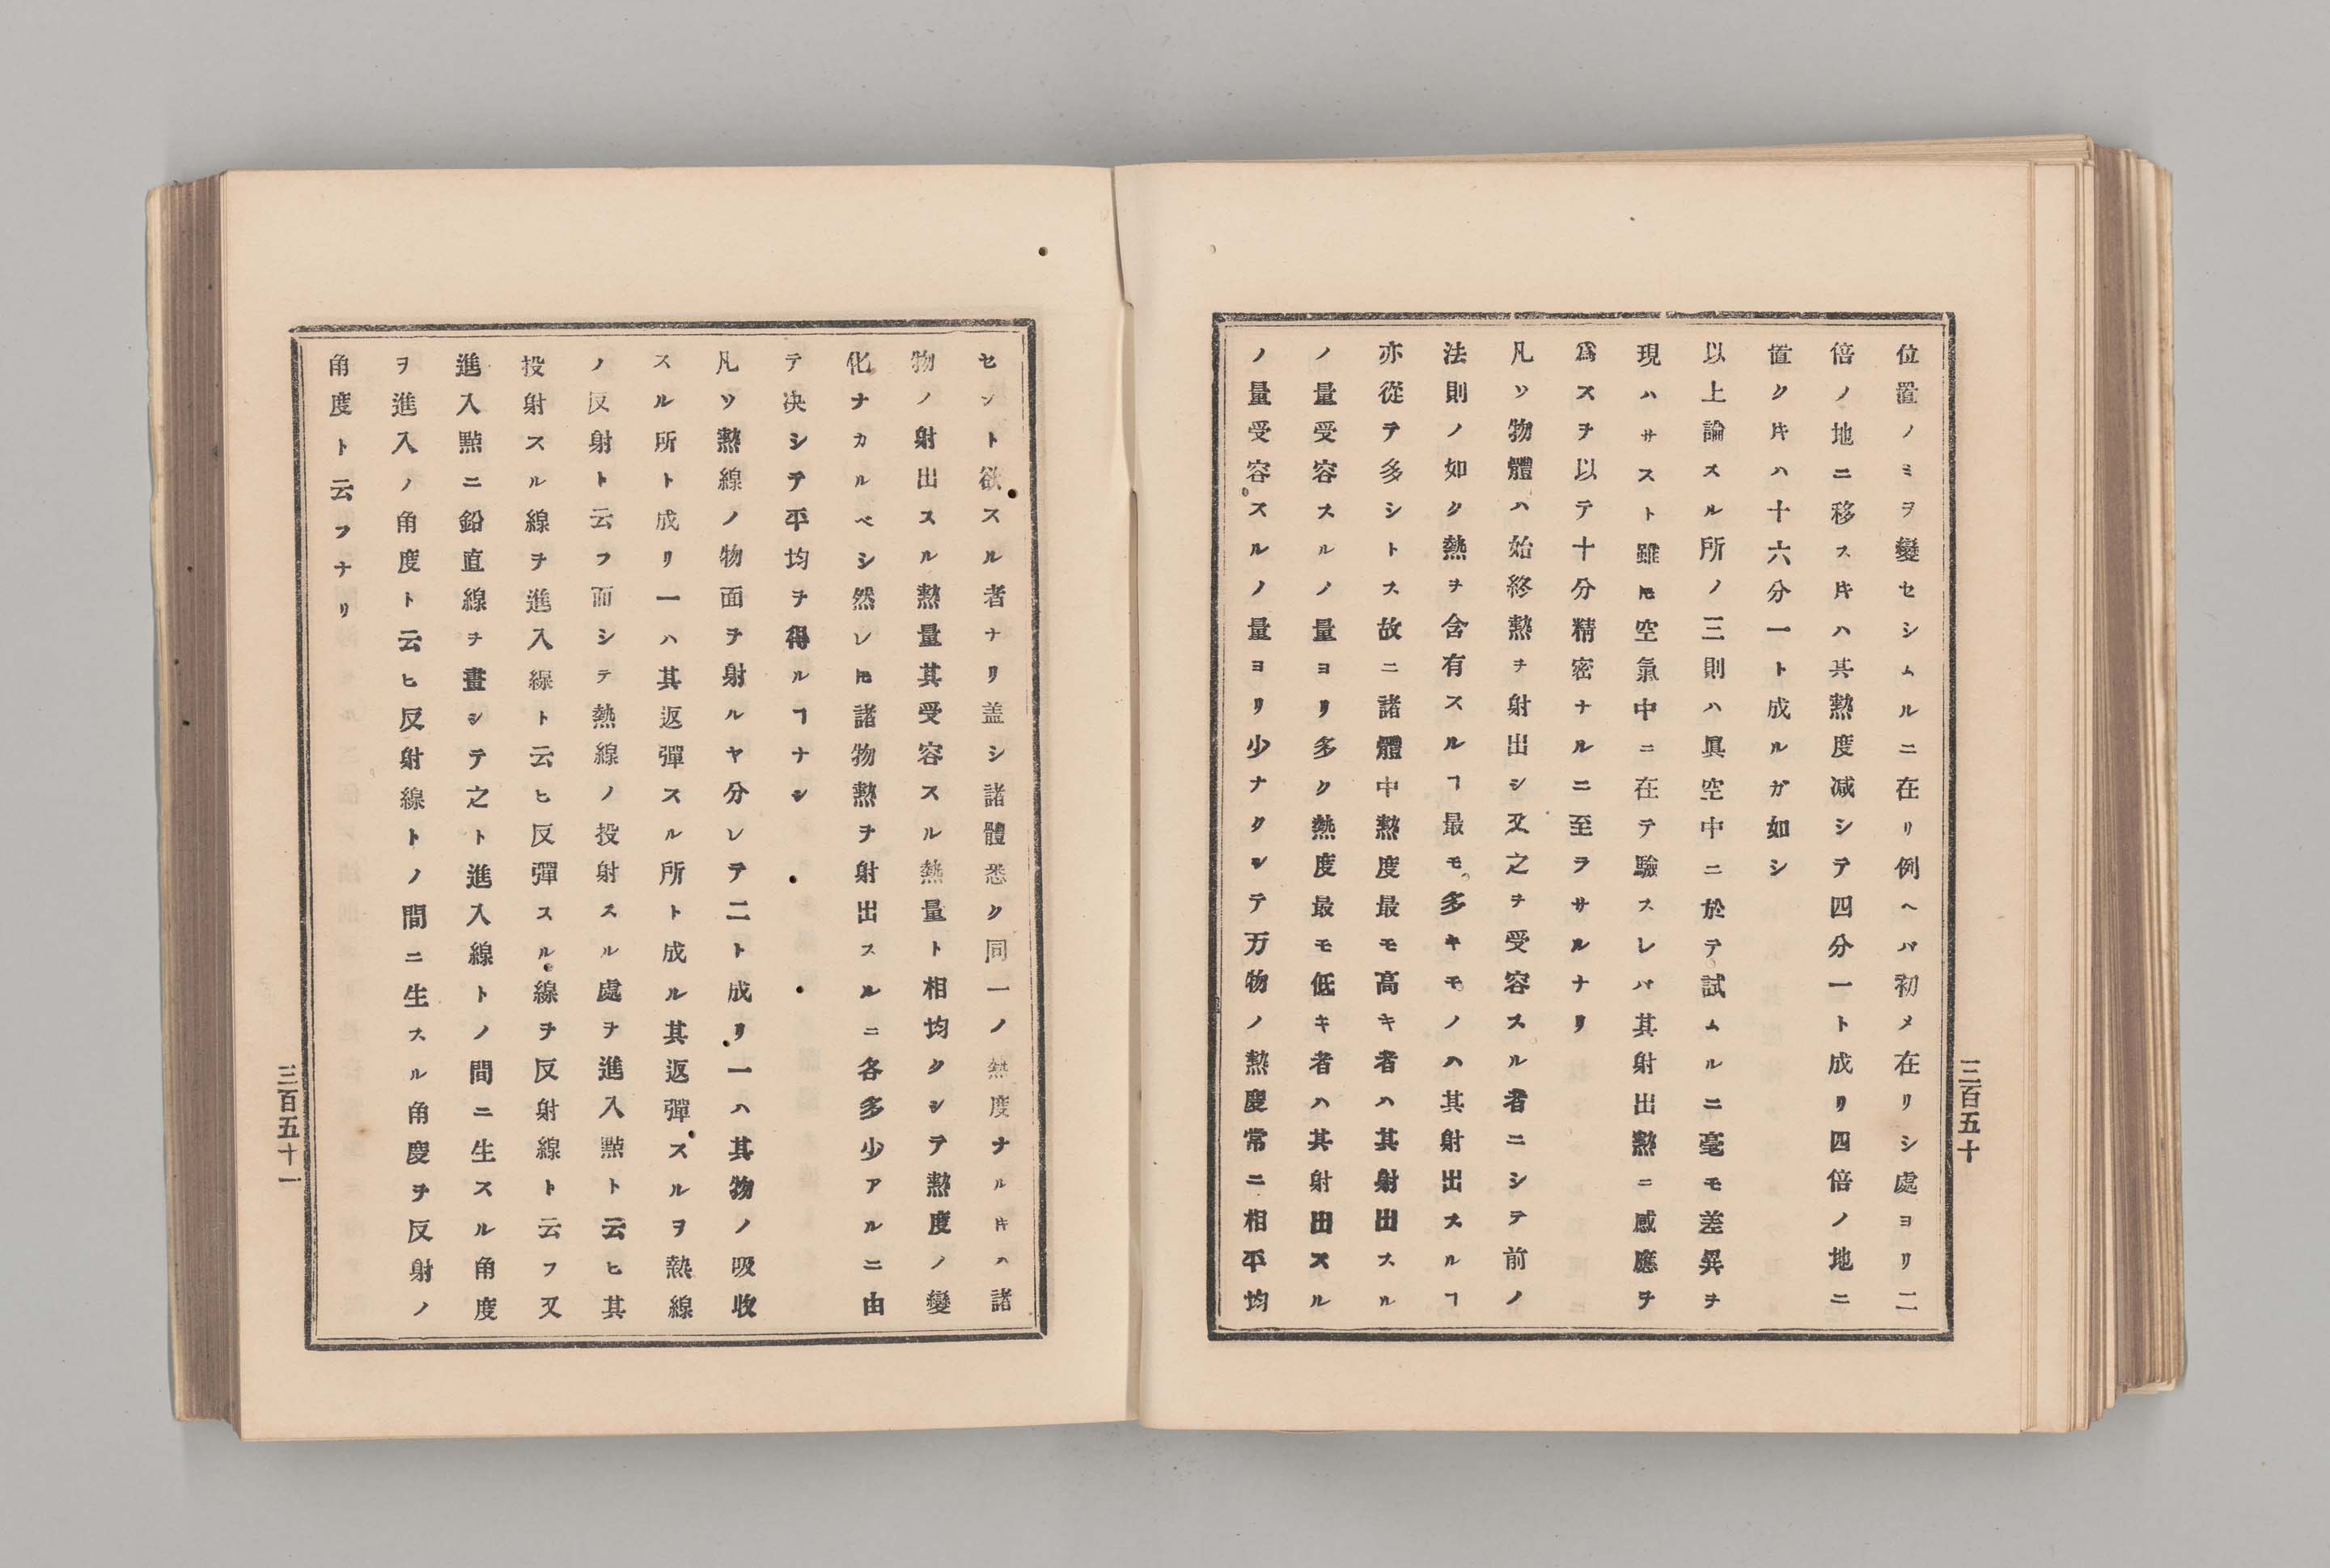 位置ノミヲ變セシムルニ在リ例ヘバ初メ在リシ處ヨリ二
倍ノ地ニ移スㇰ゙ハ其熱度減シテ四分一ト成リ四倍ノ地ニ
置クㇰ゙ハ十六分一ト成ルガ如シ
以上論スル所ノ三則ハ眞空中ニ於テ試ムルニ毫モ差異ヲ
現ハサスト雖𪜈空氣中ニ在テ驗スレバ其射出熱ニ感應ヲ
爲スヲ以テ十分精密ナルニ至ヲサルナリ
凡ソ物體ハ始終熱ヲ射出シ又之ヲ受容スル者ニシテ前ノ
法則ノ如ク熱ヲ含有スルヿ最モ多キモノハ其射出スルヿ
亦從テ多シトス故ニ諸體中熱度最モ高キ者ハ其射出スル
ノ量受容スルノ量ヨリ多ク熱度最モ低キ者ハ其射出スル
ノ量受容スルノ量ヨリ少ナクシテ万物ノ熱度常ニ相平均
三百五十
セント欲スル者ナリ盖シ諸體悉ク同一ノ熱度ナル𪜈ハ諸
物ノ射出スル熱量其受容スル熱量ト相均クシテ熱度ノ變
化ナカルベシ然レ𪜈諸物熱ヲ射出スルニ各多少アルニ由
テ决シテ平均ヲ得ルヿナシ
凡ソ熱線ノ物面ヲ射ルヤ分レテ二ト成リ一ハ其物ノ吸收
スル所ト成リ一ハ其返彈スル所ト成ル其返彈スルヲ熱線
ノ反射ト云フ而シテ熱線ノ投射スル處ヲ進入點ト云ヒ其
投射スル線ヲ進入線ト云ヒ反彈スル線ヲ反射線ト云フ又
進入點ニ鉛直線ヲ畫シテ之ト進入線トノ間ニ生スル角度
ヲ進入ノ角度ト云ヒ反射線トノ間ニ生スル角度ヲ反射ノ
角度ト云フナリ
三百五十一